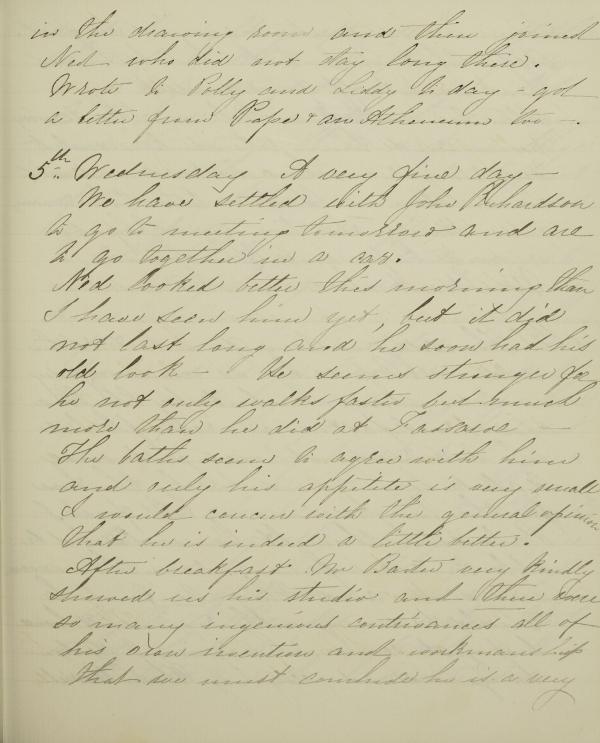 in the drawing room and then joined
Ned who did not stay long there.
Wrote to Polly and Liddy to day - got
a letter from Papa & an Athenæum too -.
5th Wednesday A very fine day -
We have settled with John Richardson
to go to meeting tomorrow and are
to go together in a car.
Ned looked better this morning than
I have seen him yet, but it did
not last long and he soon had his
old look - He seems stronger for
he not only walks faster but much
more than he did at -
The baths seem to agree with him
and only his appetite is very small
I would concur with the general opinion
that he is indeed a little better.
After breakfast Mr Barter very kindly
showed us his studio and there were
so many ingenious contrivances all of
his own invention and workmanship
that we must conclude he is a very